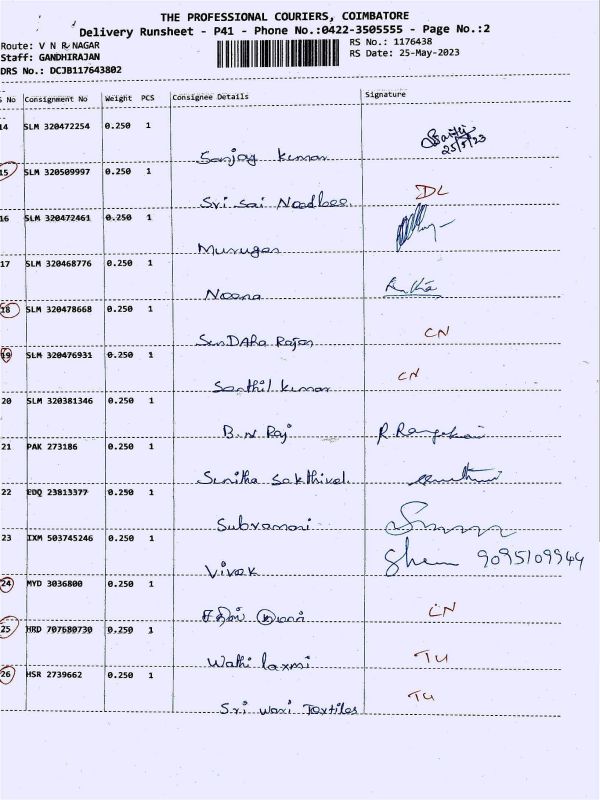 THE PROFESSIONAL COURIERS, COIMBATORE
Delivery Runsheet - P41 - Phone No.:0422-3505555 - Page No.:2
Route: V N R NAGAR
RS No.: 1176438
Staff: GANDHIRAJAN
RS Date: 25-May-2023
DRS No.: DCJB117643802
S No Consignment No Weight PCS Consignee Details Signature
14 SLM 320472254 0.250 1
25/5/23
Sanjay Kumar
15 SLM 320509997 0.250 1
DL
Sri Sai Noodless
16 SLM 320472461 0.250 1
Murugan
17 SLM 320468776 0.250 1
Noona
18 SLM 320478668 0.250 1
CN
SunDAha Rajan
19 SLM 320476931 0.250 1
CN
Santhil Kumar
20 SLM 320381346 0.250 1
B.N Raj
21 PAK 273186 0.250 1
Sunitha Sakthivel.
22 EDQ 23813377 0.250 1
Subramani
23 IXM 503745246 0.250 1
9095109944
Vivek
24 MYD 3036800 0.250 1
CN
25 HRD 707680730 0.250 1
TU
Wathi laxmi
26 HSR 2739662 0.250 1
TU
Sri Wari Textiles